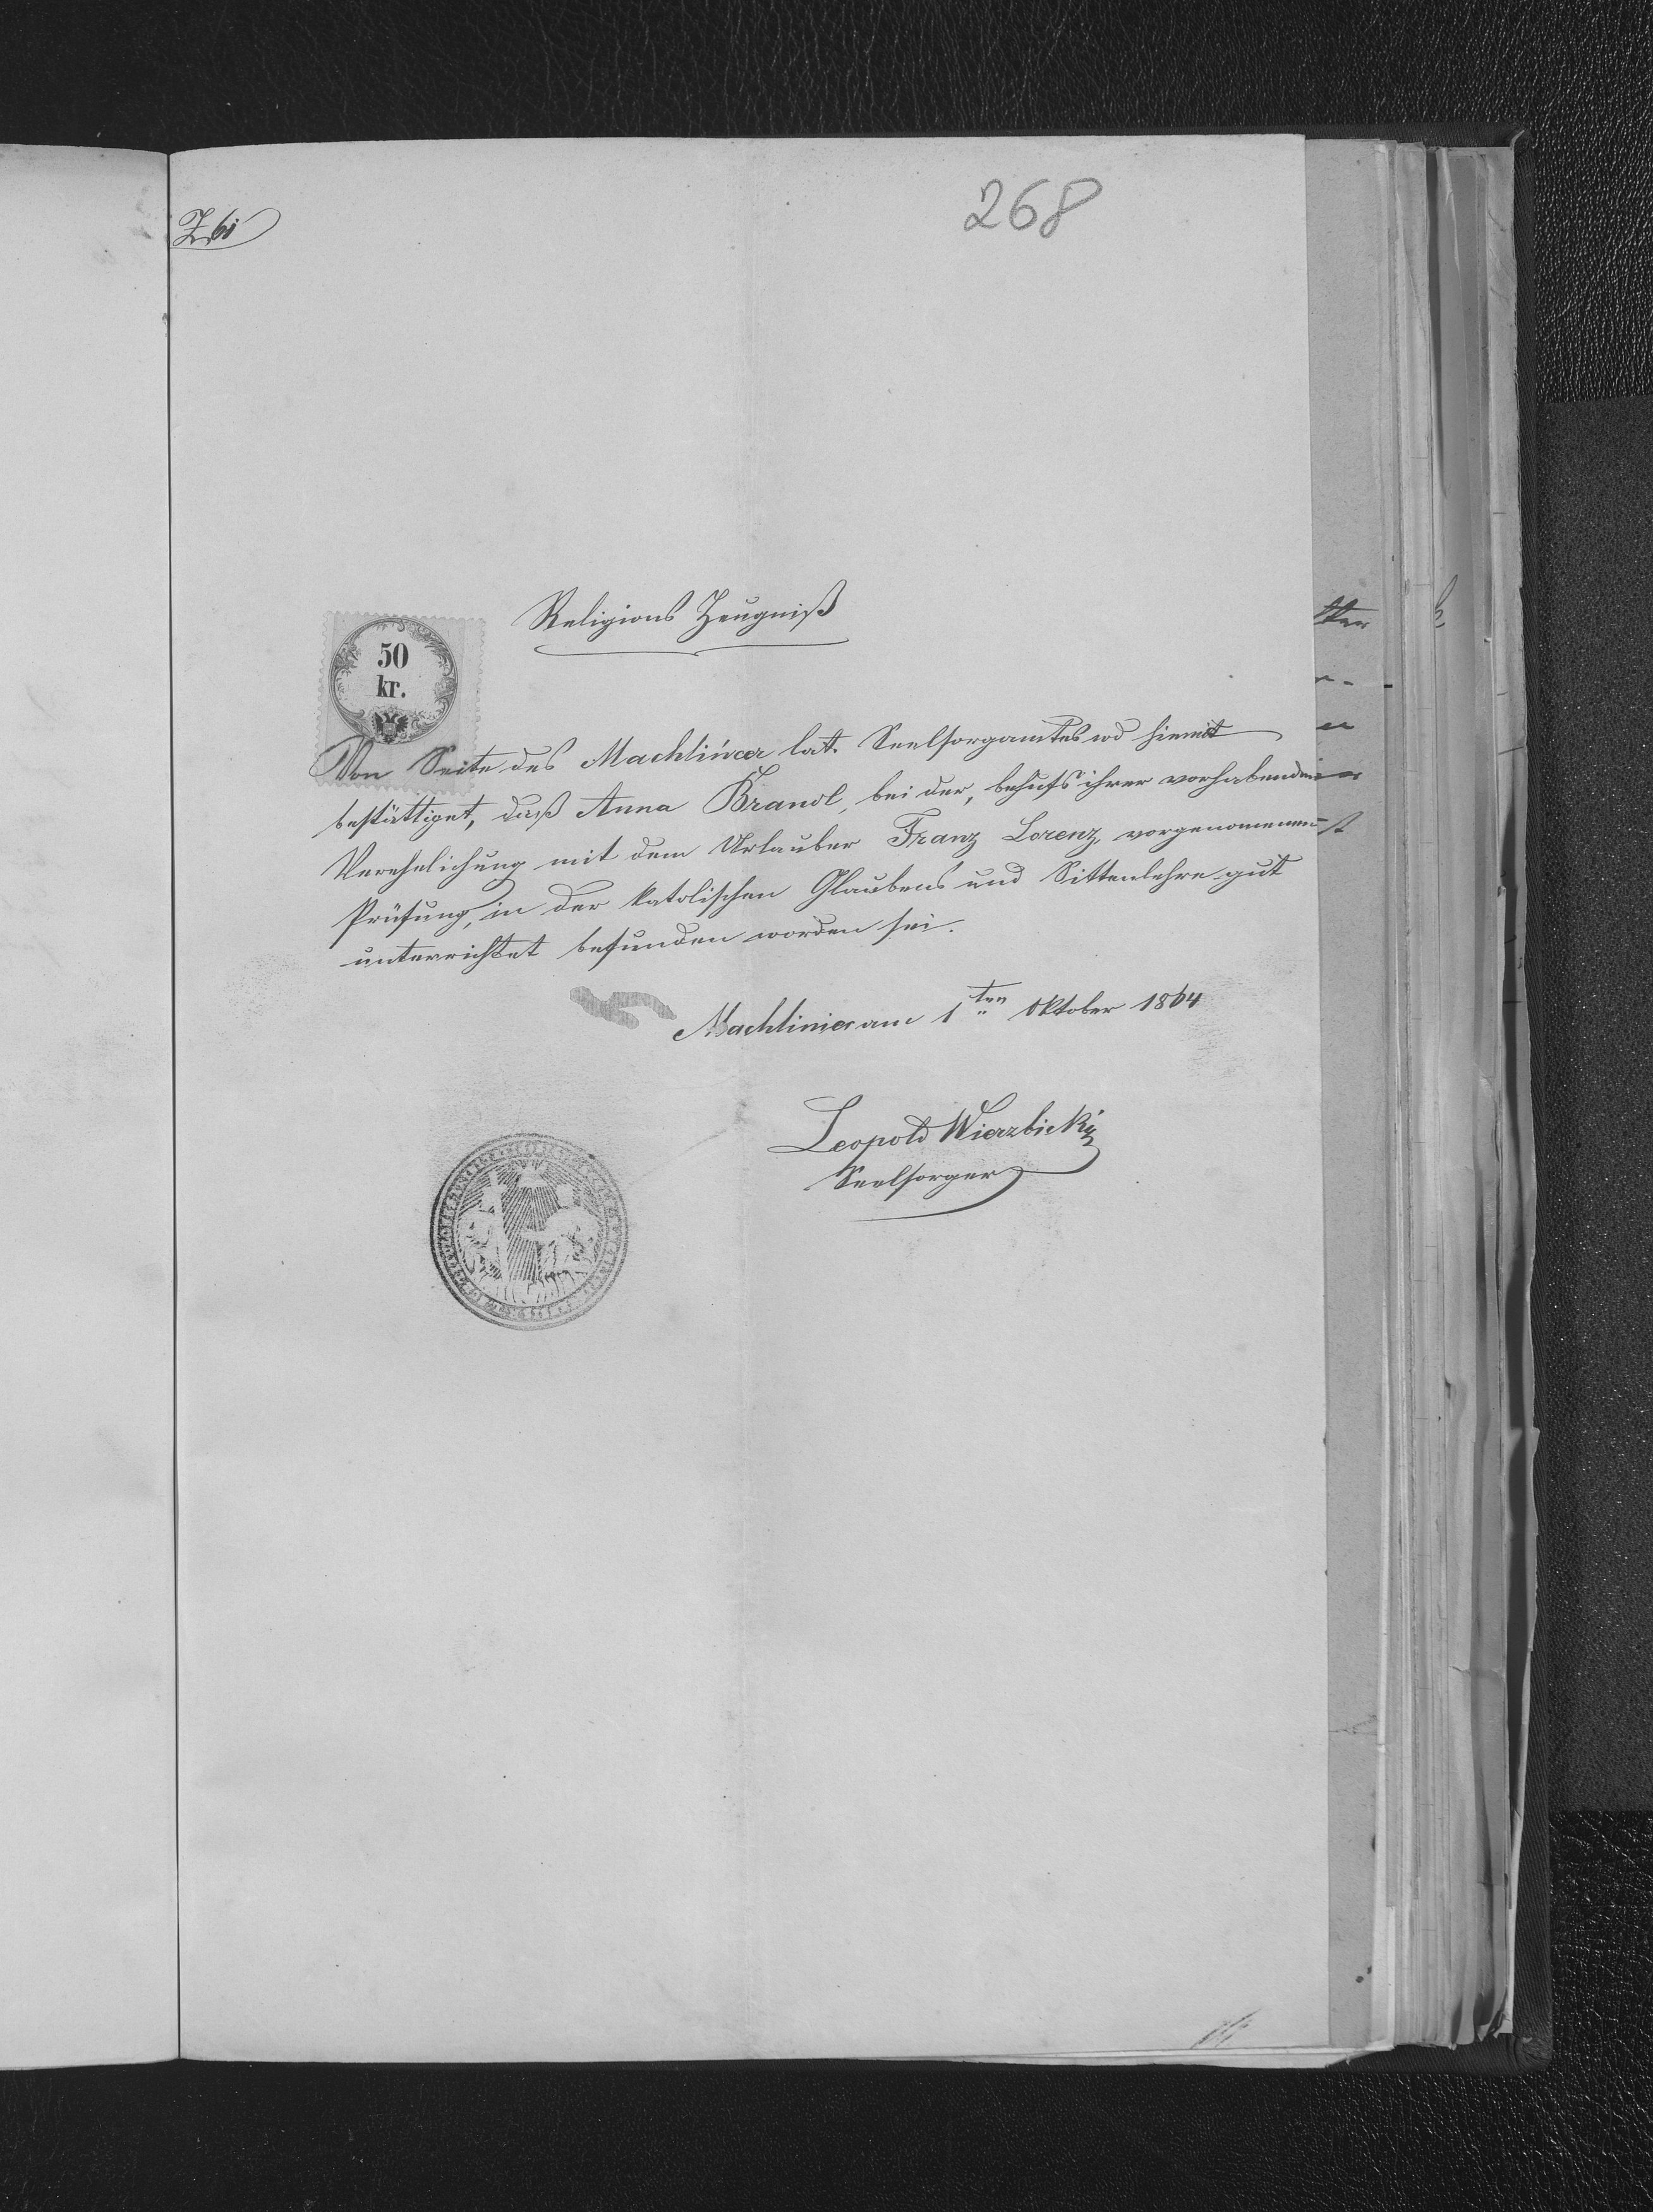 268
Religions Zeugniß
50
kr.
Von Seite des Machlińcer lat. Seelsorgamtes wd hiemit
bestättiget, daß Anna Brandl, bei der, behufs ihrer vorhabenden
Verehelichung mit dem Urlauber Franz Lorenz, vorgenomenen
Prüfung, in der katolischen Glaubens und Sittenlehre gut
unterrichtet befunden worden sei.
Machliniec am 1ten Oktober 1864
Leopold Wierzbicki
Seelsorger